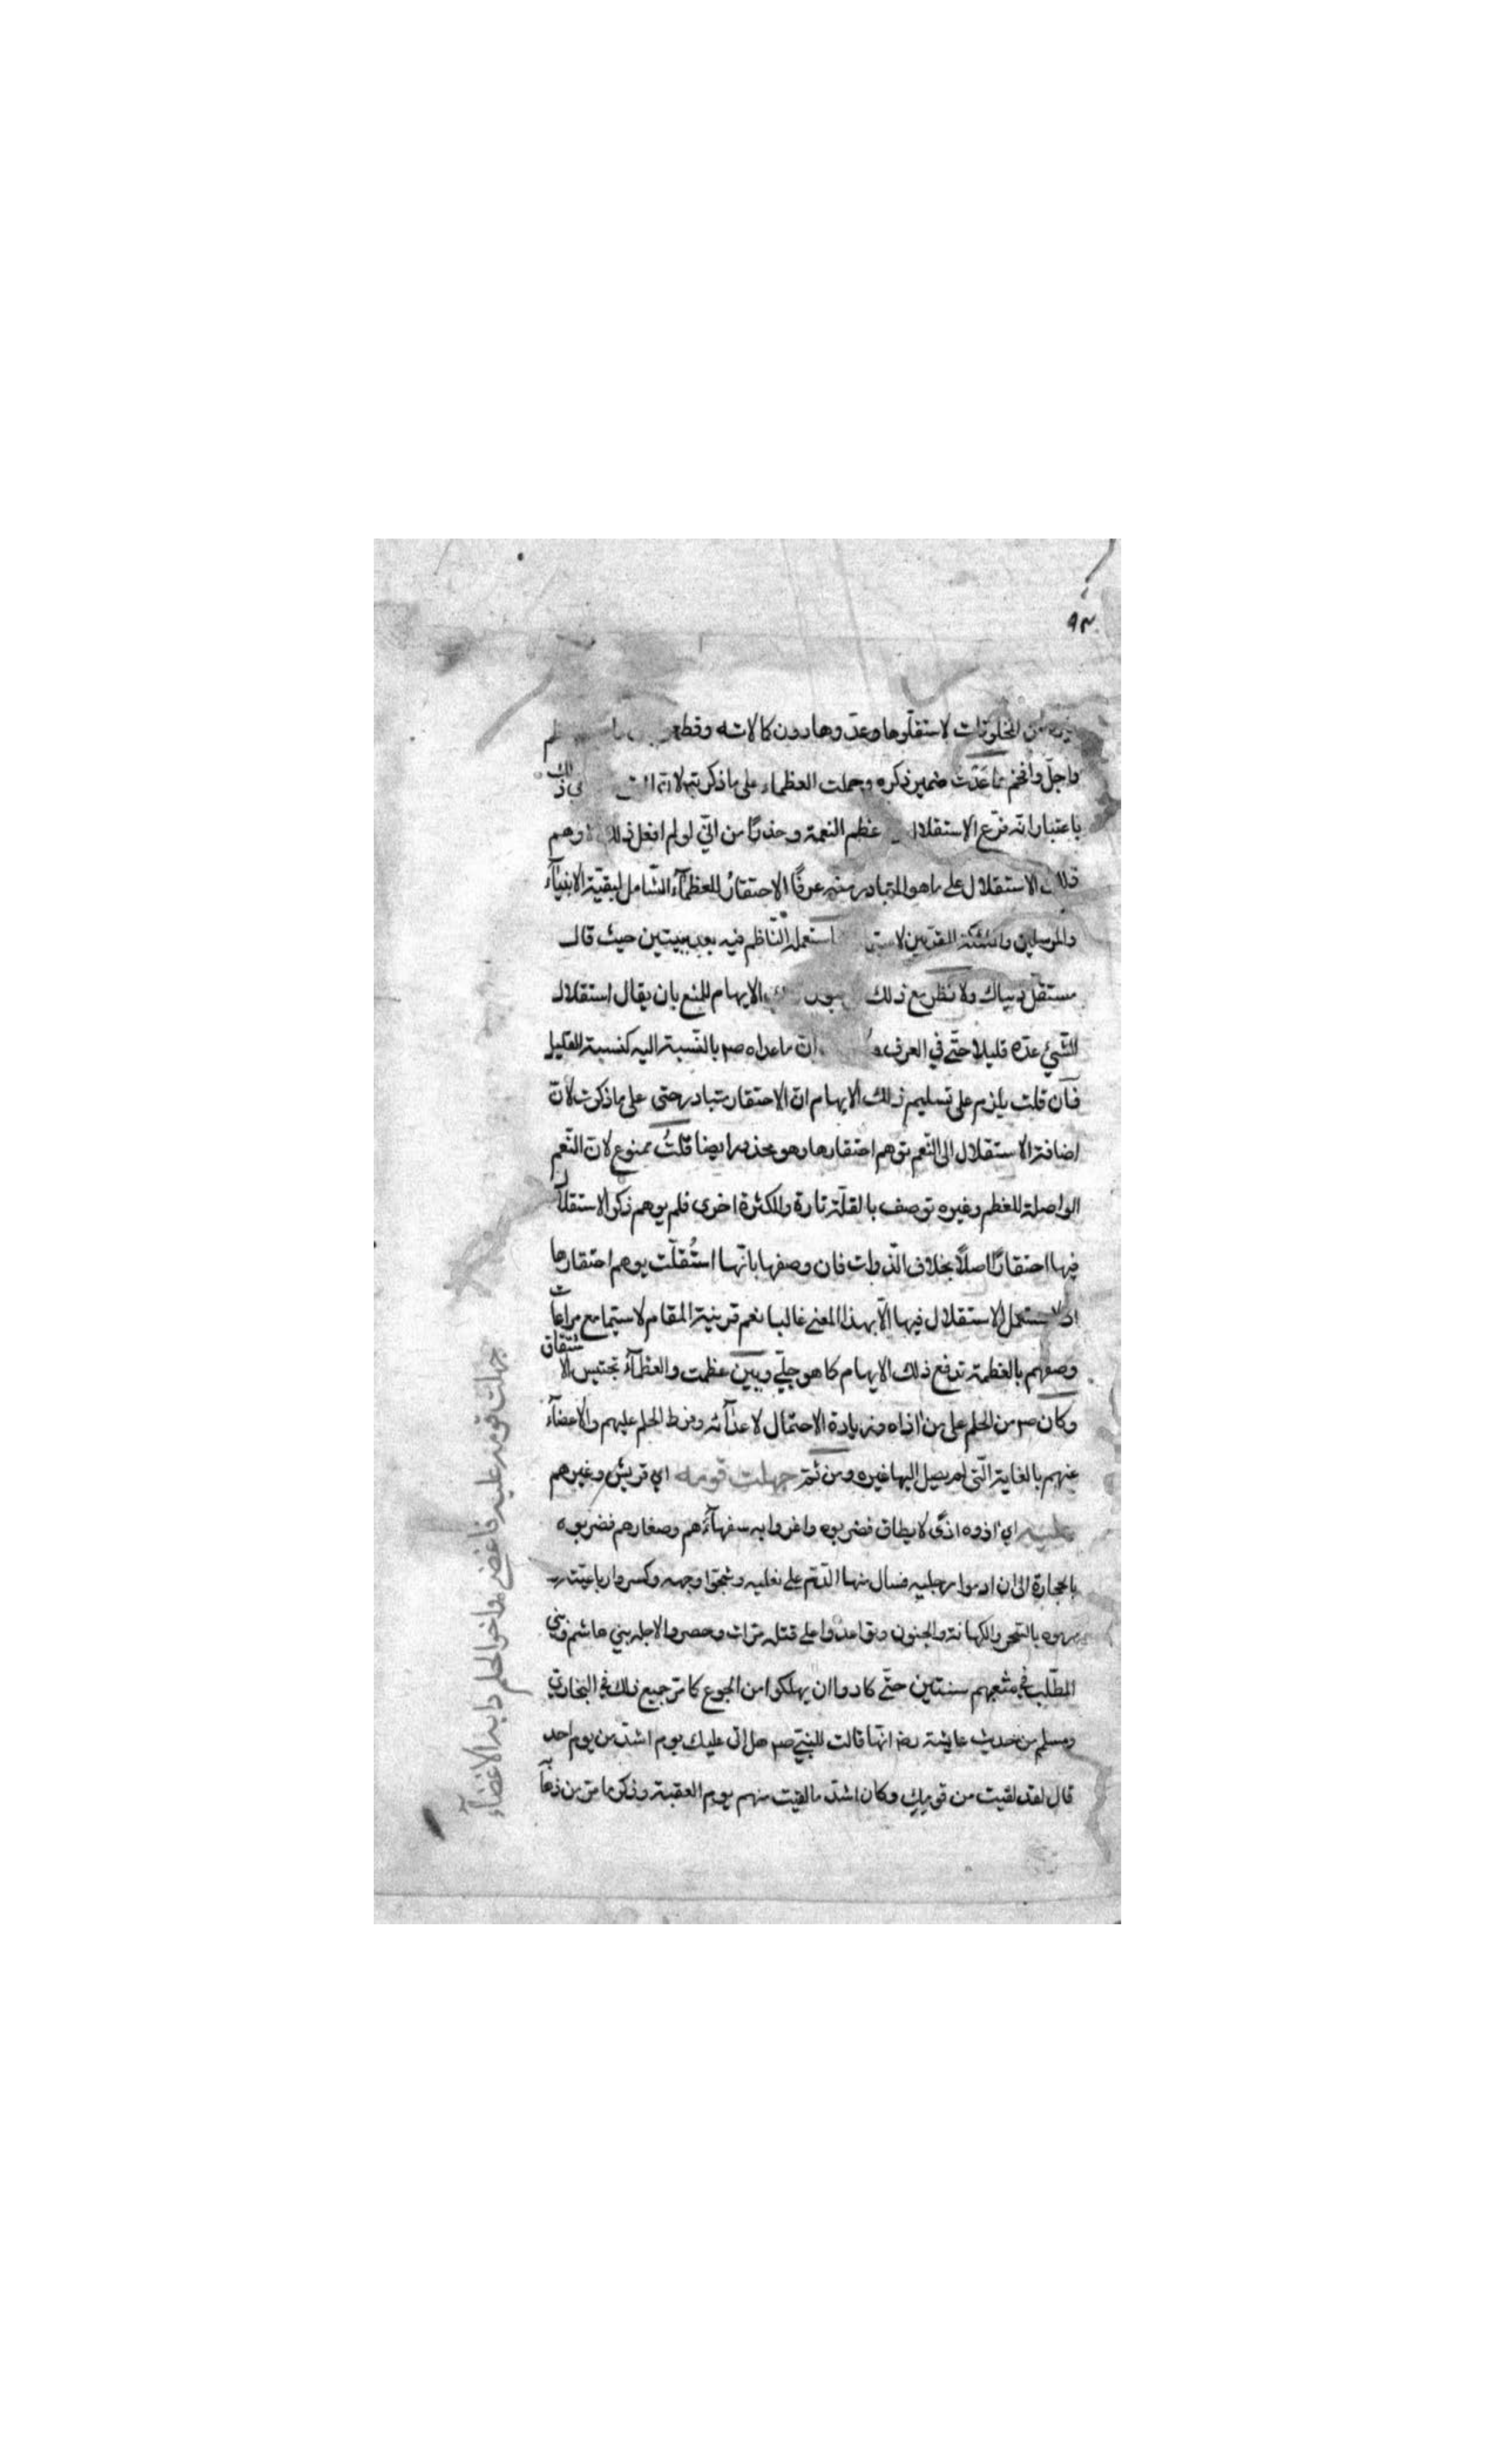 ٩٣
المخلوقات لاستقلّوها وعدّوها دون كمالاته وقطع
واجلّ وافخم ما عَدَت ضمير ذكره وحملت العظماء على ما ذكرته لا انه ذلك
باعتبار انه فرّع الاستقلال عظم النعمة وحذرًا من انّي لو لم افعل ذلك اوهم
ذلك الاستقلال على ما هو المتبادر منه عرفًا الاحتقارُ للعظمآء الشّامل لبقيّة الانبيآء
والمرسلين والملئكة المقرّبين استعمله النّاظم فيه بعد بيتين حيث قال
مستقلّ دنياك ولا نظر مع ذلك الايهام للمنع بان يقال استقلال
الشّيئ عدّه قليلا حتّى في العرف انّ ما عداه صم بالنّسبة اليه كنسبة القليل
فآن قلت يلزم على تسليم ذلك الايهام انّ الاحتقار متبادر حتى على ما ذكرت لانّ
اضافة الاستقلال الى النّعم توهم احتقارها وهو محذور ايضا قلتُ ممنوع لانّ النّعم
الواصلة للعظم وغيره توصف بالقلّة تارة والكثرة اخرى فلم يوهم ذكر الاستقلال
فيها احتقارًا اصلًا بخلاف الذّوات فان وصفها بانّها استُقلّت يوهم احتقارها
اذ لا يستعمل الاستقلال فيها الّا بهذا المعنى غالبا نعم قرينة المقام لا سيّما مع مراعات
وصفهم بالعظمة تدفع ذلك الايهام كما هو جليّ وبين عظمت والعظمآء تجنيس الاشتقاق
وكان صم من الحلم على من اذاه وزيادة الاحتمال لاعدآئه وفرط الحلم عليهم والاغضآء
عنهم بالغاية الّتي لم يصل اليها غيره ومن ثمّ جهلت قومه اي قريش وغيرهم
عليه اي اذوه اذًى لا يطاق فضربوه واغروا به سفهآءهم وصغارهم فضربوه
بالحجارة الى ان ادموا رجليه فسال منها الدّم على نعليه وشجّوا وجهه وكسروا رباعيّته
بالسّحر والكهانة والجنون وتواعدوا على قتله مرّات وحصروا لاجله بني هاشم وبني
المطّلب في شعبهم سنتين حتّى كادوا ان يهلكوا من الجوع كما مرّ جميع ذلك في البخاري
ومسلم من حديث عايشة رضها انّها قالت للنّبيّ صم هل اتى عليك يوم اشدّ من يوم احد
قال لقد لقيت من قومك وكان اشدّ ما لقيت منهم يوم العقبة وذكر ما مرّ من ذهآ
جهلت قومه عليه فاغضى واخو الحلم دابه الاغضآء